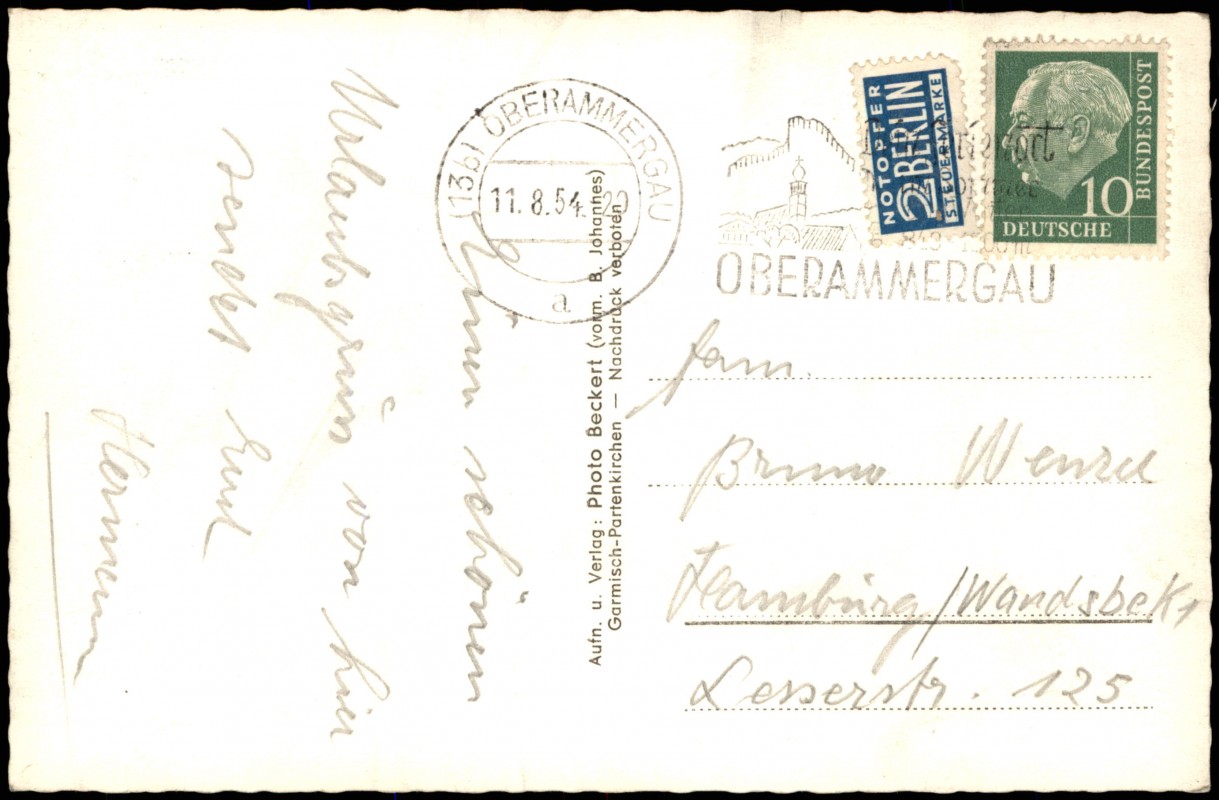 (13b) OBERAMMERGAU
11.8.54.
a
OBERAMMERGAU
NOTOPFER
2 BERLIN
STEUERMARKE
DEUTSCHE
BUNDESPOST
10
Einen schönen
Urlaubsgruß von hier
sendet Euch
Hermann
Aufn. u. Verlag: Photo Beckert (vorm. B. Johannes)
Garmisch-Partenkirchen — Nachdruck verboten
Fam.
Bruno Wenzel
Hamburg/Wandsbek 1
Lesserstr. 125